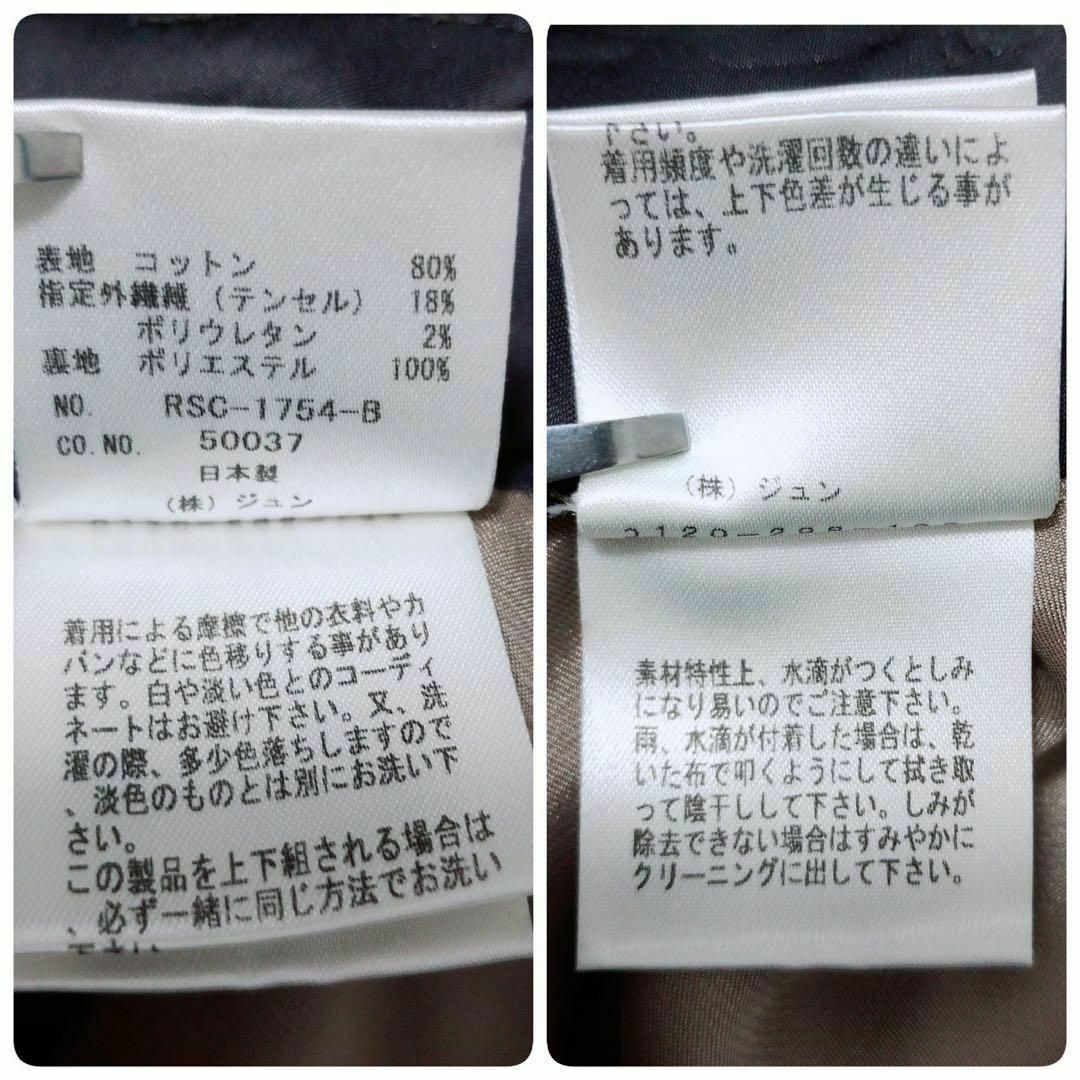 表地 コットン 80%
指定外繊維(テンセル) 18%
ポリウレタン 2%
裏地 ポリエステル 100%
NO. RSC-1754-B
CO.NO. 50037
日本製
(株)ジュン
着用による摩擦で他の衣料やカ
バンなどに色移りする事があり
ます。白や淡い色とのコーディ
ネートはお避け下さい。又、洗
濯の際、多少色落ちしますので
、淡色のものとは別にお洗い下
さい。
この製品を上下組される場合は
、必ず一緒に同じ方法でお洗い
下さい
下さい。
着用頻度や洗濯回数の違いによ
っては、上下色差が生じる事が
あります。
(株)ジュン
素材特性上、水滴がつくとしみ
になり易いのでご注意下さい。
雨、水滴が付着した場合は、乾
いた布で叩くようにして拭き取
って陰干しして下さい。しみが
除去できない場合はすみやかに
クリーニングに出して下さい。